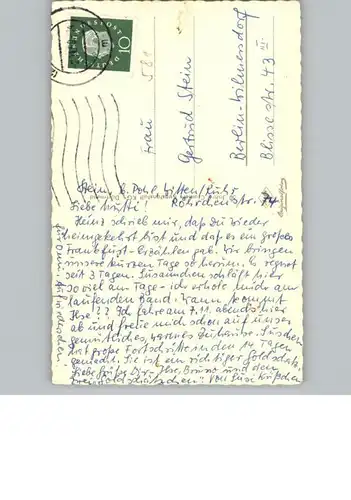 Frau
Gertrud Stein
Berlin-Wilmersdorf
Blissestr. 43 III
Stein, b. Pohl, Witten/Ruhr
Liebe Mutti! Röhrchenstr. 74
Heinz schrieb mir, daß Du wieder
heimgekehrt bist und daß es ein großes
Frankfurt-Erzählen gab. Wir bringen
unsere kurzen Tage so herum. Es regnet
seit 3 Tagen. Susannchen schläft hier
so viel am Tage - ich erhole mich am
laufenden Band. Wann kommt
Ilse?? Ich fahre am 7.11. abends hier
ab und freue mich schon auf unser
gemütliches, warmes Zuhause. Suschen
hat große Fortschritte in den 14 Tagen
gemacht. Sie ist ein richtiger Goldschatz.
Liebe Grüße Dir, Ilse, Bruno und den